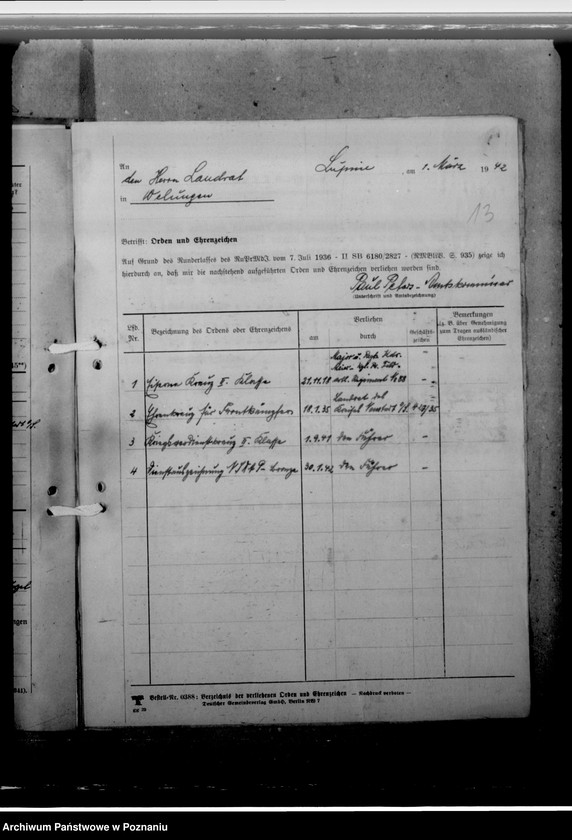 An
den Herrn Landrat
in Welungen
am 1. März 1942
13
Betrifft: Orden und Ehrenzeichen
Auf Grund des Runderlasses des RuPrMdI. vom 7. Juli 1936 - II SB 6180/2827 - (RMBliB. S. 935) zeige ich
hierdurch an, daß mir die nachstehend aufgeführten Orden und Ehrenzeichen verliehen worden sind.
Paul Peters - Amtskommissar
(Unterschrift und Amtsbezeichnung)
Lfd. Nr.
Bezeichnung des Ordens oder Ehrenzeichens
Verliehen
am
durch
Geschäftszeichen
Bemerkungen
(z. B. über Genehmigung
vom Tragen ausländischer
Ehrenzeichen)
Major u. Regts. Kdr.
1 Eisernes Kreuz II. Klasse 21.11.18 Regiment No 83 -
Landrat des
2 Ehrenkreuz für Frontkämpfer 10.1.35 Kreises
3 Kriegsverdienstkreuz II. Klasse 1.9.41 den Führer -
4 Dienstauszeichnung NSDAP - bronze 30.1.42 den Führer -
Bestell-Nr. 0388: Verzeichnis der verliehenen Orden und Ehrenzeichen — Nachdruck verboten —
Deutscher Gemeindeverlag GmbH, Berlin NW 7
Archiwum Państwowe w Poznaniu